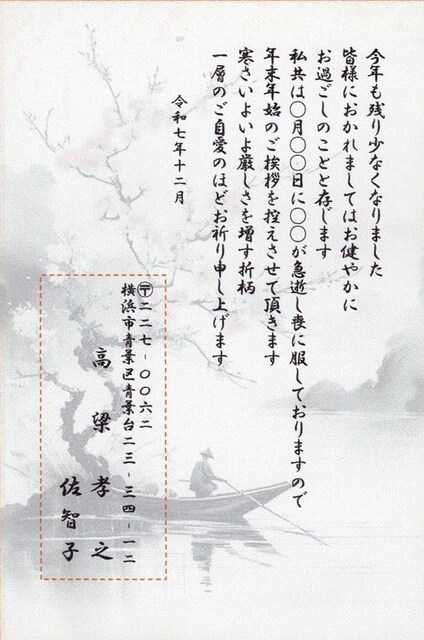 今年も残り少なくなりました
皆様におかれましてはお健やかに
お過ごしのことと存じます
私共は〇月〇〇日に〇〇が急逝し喪に服しておりますので
年末年始のご挨拶を控えさせて頂きます
寒さいよいよ厳しさを増す折柄
一層のご自愛のほどお祈り申し上げます
令和七年十二月
〒二二七-〇〇六二
横浜市青景区青景台二三-三四-一二
高梁孝之
佐智子